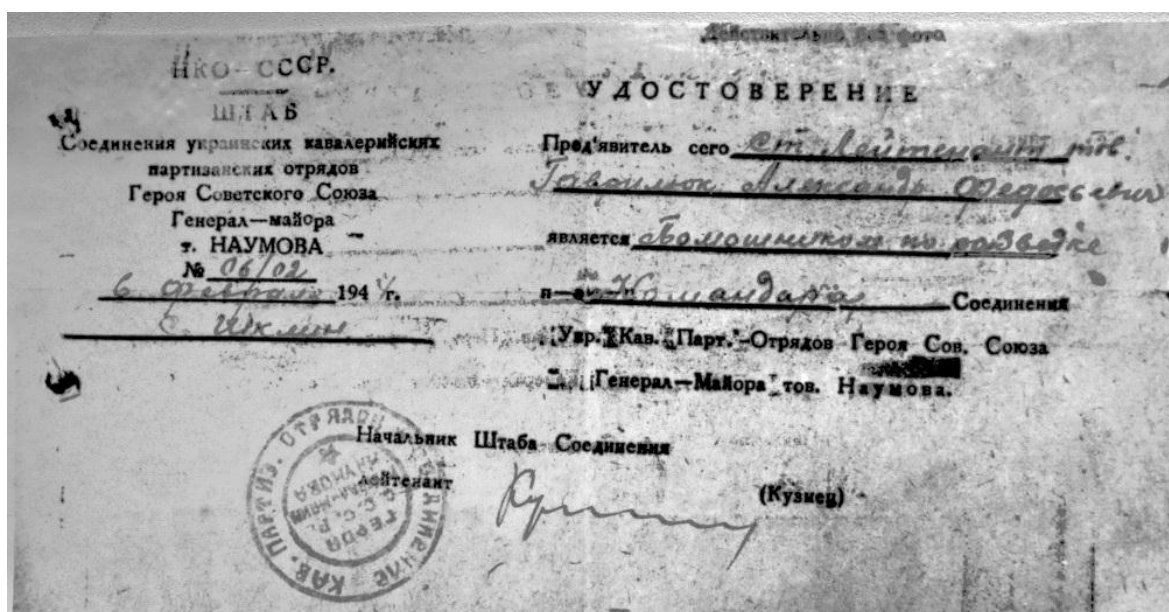 Действительно без фото
НКО—СССР.
ШТАБ
Соединения украинских кавалерийских
партизанских отрядов
Героя Советского Союза
Генерал—майора
т. НАУМОВА
№ 06/02
6 февраля 1944 г.
с.
УДОСТОВЕРЕНИЕ
Пред'явитель сего Ст. Лейтенант тов.
Гаврилюк Александр
является Помошником по разведке
Командира Соединения
Укр. Кав. Парт. Отрядов Героя Сов. Союза
Генерал—Майора тов. Наумова.
Начальник Штаба Соединения
лейтенант (Кузнец)
КАВ. ПАРТИЗ. ОТРЯДОВ
ГЕРОЯ